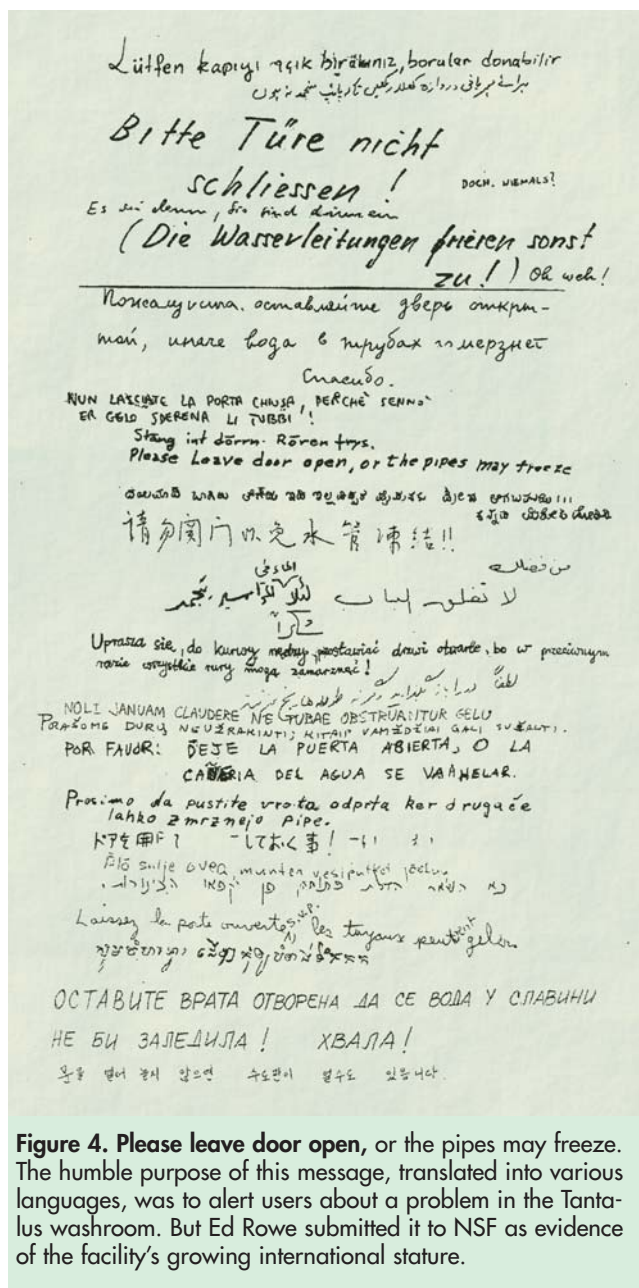 Lütfen kapıyı açık bırakınız, borular donabilir
Bitte Türe nicht
schliessen!
DOCH. NIEMALS?
Es sei denn, Sie sind darinnen
(Die Wasserleitungen frieren sonst
zu!) Oh weh!
Пожалуйста. оставляйте дверь откры-
той, иначе вода в трубах замерзнет
Спасибо.
NUN LASSIATE LA PORTA CHIUSA, PERCHÈ SENNO'
ER GELO SDERENA LI TUBBI!!
Stäng int dörrn. Rören frys.
Please Leave door open, or the pipes may freeze
请勿関门以免水管凍結!!
من فضلك
الماء في
لا تغلق الباب لئلا يتجمد
شكراً
Uprasza się, do kurwy nędzy, pozostawiać drzwi otwarte, bo w przeciwnym
razie wszystkie rury mogą zamarznąć!
NOLI JANUAM CLAUDERE NE TUBAE OBSTRUANTUR GELU
PRAŠOME DURŲ NEUŽRAKINTI; KITAIP VAMZDŽIAI GALI SUŠALTI.
POR FAVOR: DEJE LA PUERTA ABIERTA, O LA
CAÑERIA DEL AGUA SE VA A HELAR.
Prosimo da pustite vrata odprta ker drugače
lahko zmrznejo pipe.
ドアを開 しておく事!
Älö sulje ovea, munten vesiputket jäätyy
נא השאר הדלת פתוחה פן יקפאו הצינורות.
Laissez la porte ouverte s.v.p. les tuyaux peuvent geler
ОСТАВИТЕ ВРАТА ОТВОРЕНА ДА СЕ ВОДА У СЛАВИНИ
НЕ БИ ЗАЛЕДИЛА! ХВАЛА!
문을 열어 놓지 않으면 수도관이 얼수도 있읍니다.
Figure 4. Please leave door open, or the pipes may freeze.
The humble purpose of this message, translated into various
languages, was to alert users about a problem in the Tanta-
lus washroom. But Ed Rowe submitted it to NSF as evidence
of the facility's growing international stature.